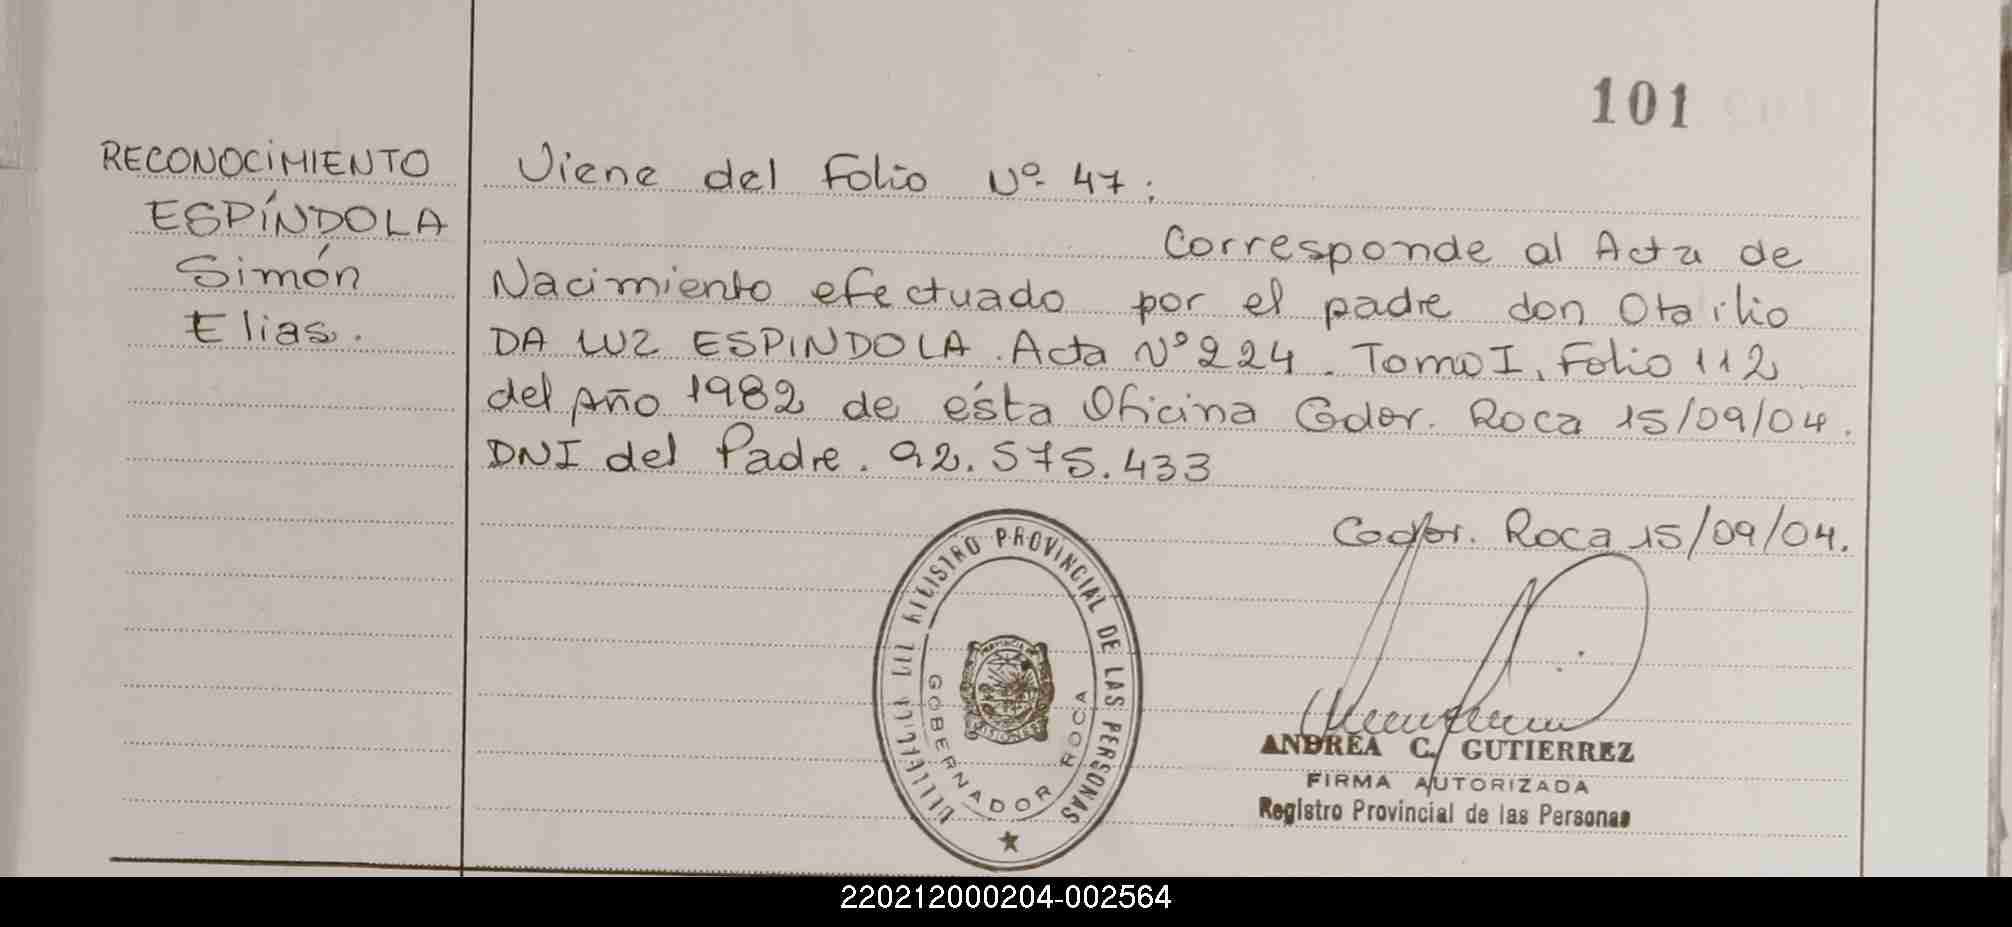 101
RECONOCIMIENTO
ESPÍNDOLA
Simón
Elias.
Viene del Folio Nº 47:
Corresponde al Acta de
Nacimiento efectuado por el padre don Otailio
DA LUZ ESPINDOLA. Acta Nº 224. Tomo I, Folio 112
del Año 1982 de ésta Oficina Gdor. Roca 15/09/04.
DNI del Padre. 92.575.433
Godor. Roca 15/09/04.
REGISTRO PROVINCIAL DE LAS PERSONAS
GOBERNADOR ROCA
ANDREA C. GUTIERREZ
FIRMA AUTORIZADA
Registro Provincial de las Personas
220212000204-002564